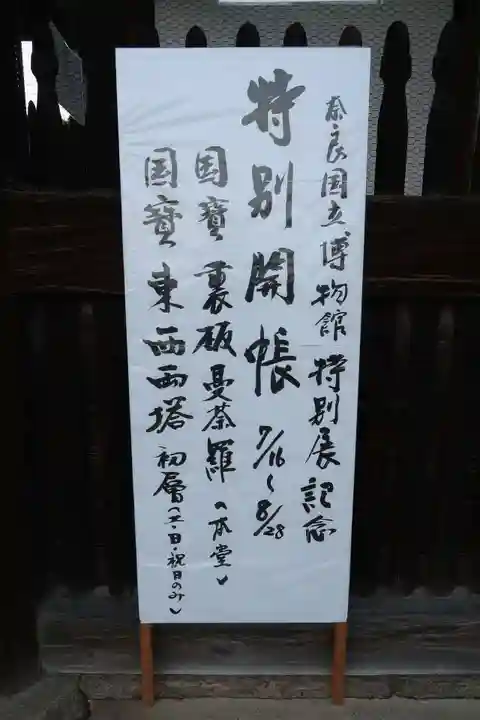 奈良国立博物館 特別展記念
特別開帳 7/16～8/28
国寶 裏板曼荼羅（本堂）
国寶 東西両塔 初層（土・日・祝日のみ）